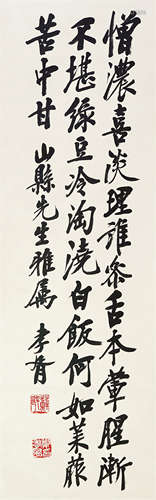 憎濃喜淡理誰參舌本葷腥漸
不堪綠豆冷淘澆白飯何如萊菔
苦中甘 山縣先生雅屬 李